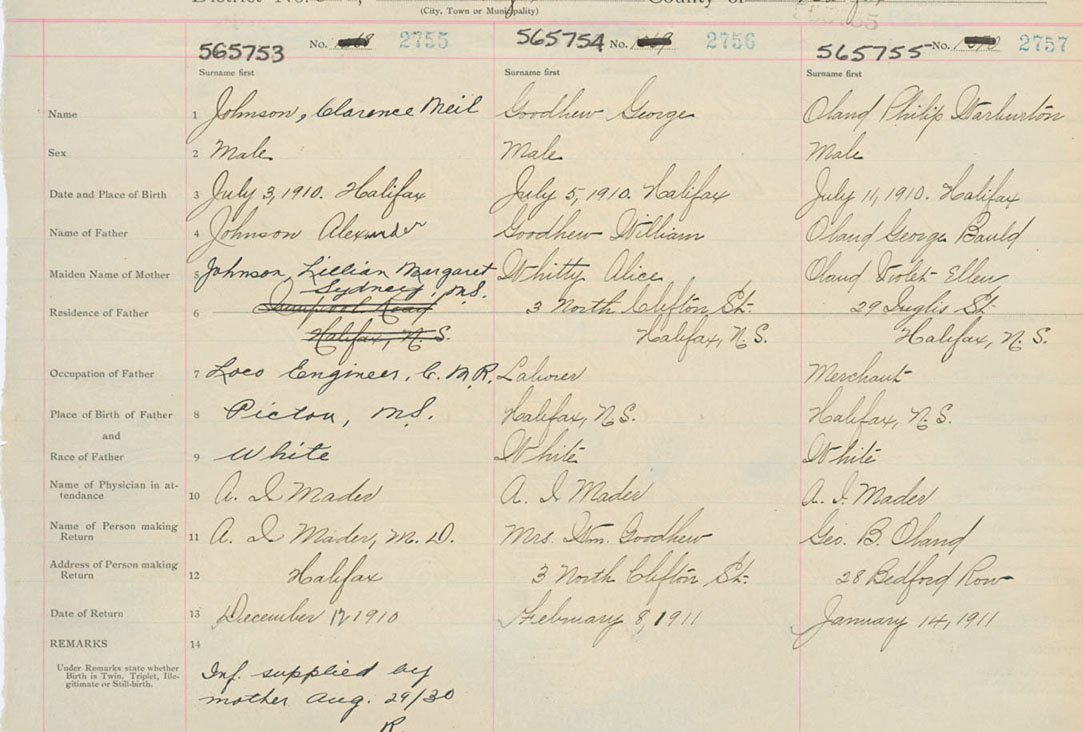 (City, Town or Municipality)
565753 No. 2755 565754 No. 2756 565755 No. 2757
Surname first Surname first Surname first
Name 1 Johnson, Clarence Neil Goodhew George Oland Philip Warburton
Sex 2 Male Male Male
Date and Place of Birth 3 July 3, 1910. Halifax July 5, 1910. Halifax July 11, 1910. Halifax
Name of Father 4 Johnson Alexander Goodhew William Oland George Bauld
Maiden Name of Mother 5 Johnson, Lillian Margaret Whitty Alice Oland Violet Ellen
Sydney, N.S.
Residence of Father 6 3 North Clifton St. 29 Inglis St.
Halifax, N.S. Halifax, N.S. Halifax, N.S.
Occupation of Father 7 Loco Engineer, C.N.R. Laborer Merchant
Place of Birth of Father 8 Pictou, N.S. Halifax, N.S. Halifax, N.S.
and
Race of Father 9 White White White
Name of Physician in at-
tendance 10 A. I. Mader A. I. Mader A. I. Mader
Name of Person making
Return 11 A. I. Mader, M.D. Mrs. Wm. Goodhew Geo. B. Oland
Address of Person making
Return 12 Halifax 3 North Clifton St. 28 Bedford Row
Date of Return 13 December 12 1910 February 8, 1911 January 14, 1911
REMARKS 14
Under Remarks state whether
Birth is Twin, Triplet, Ille-
gitimate or Still-birth.
Inf. supplied by
mother Aug. 29/30
R.